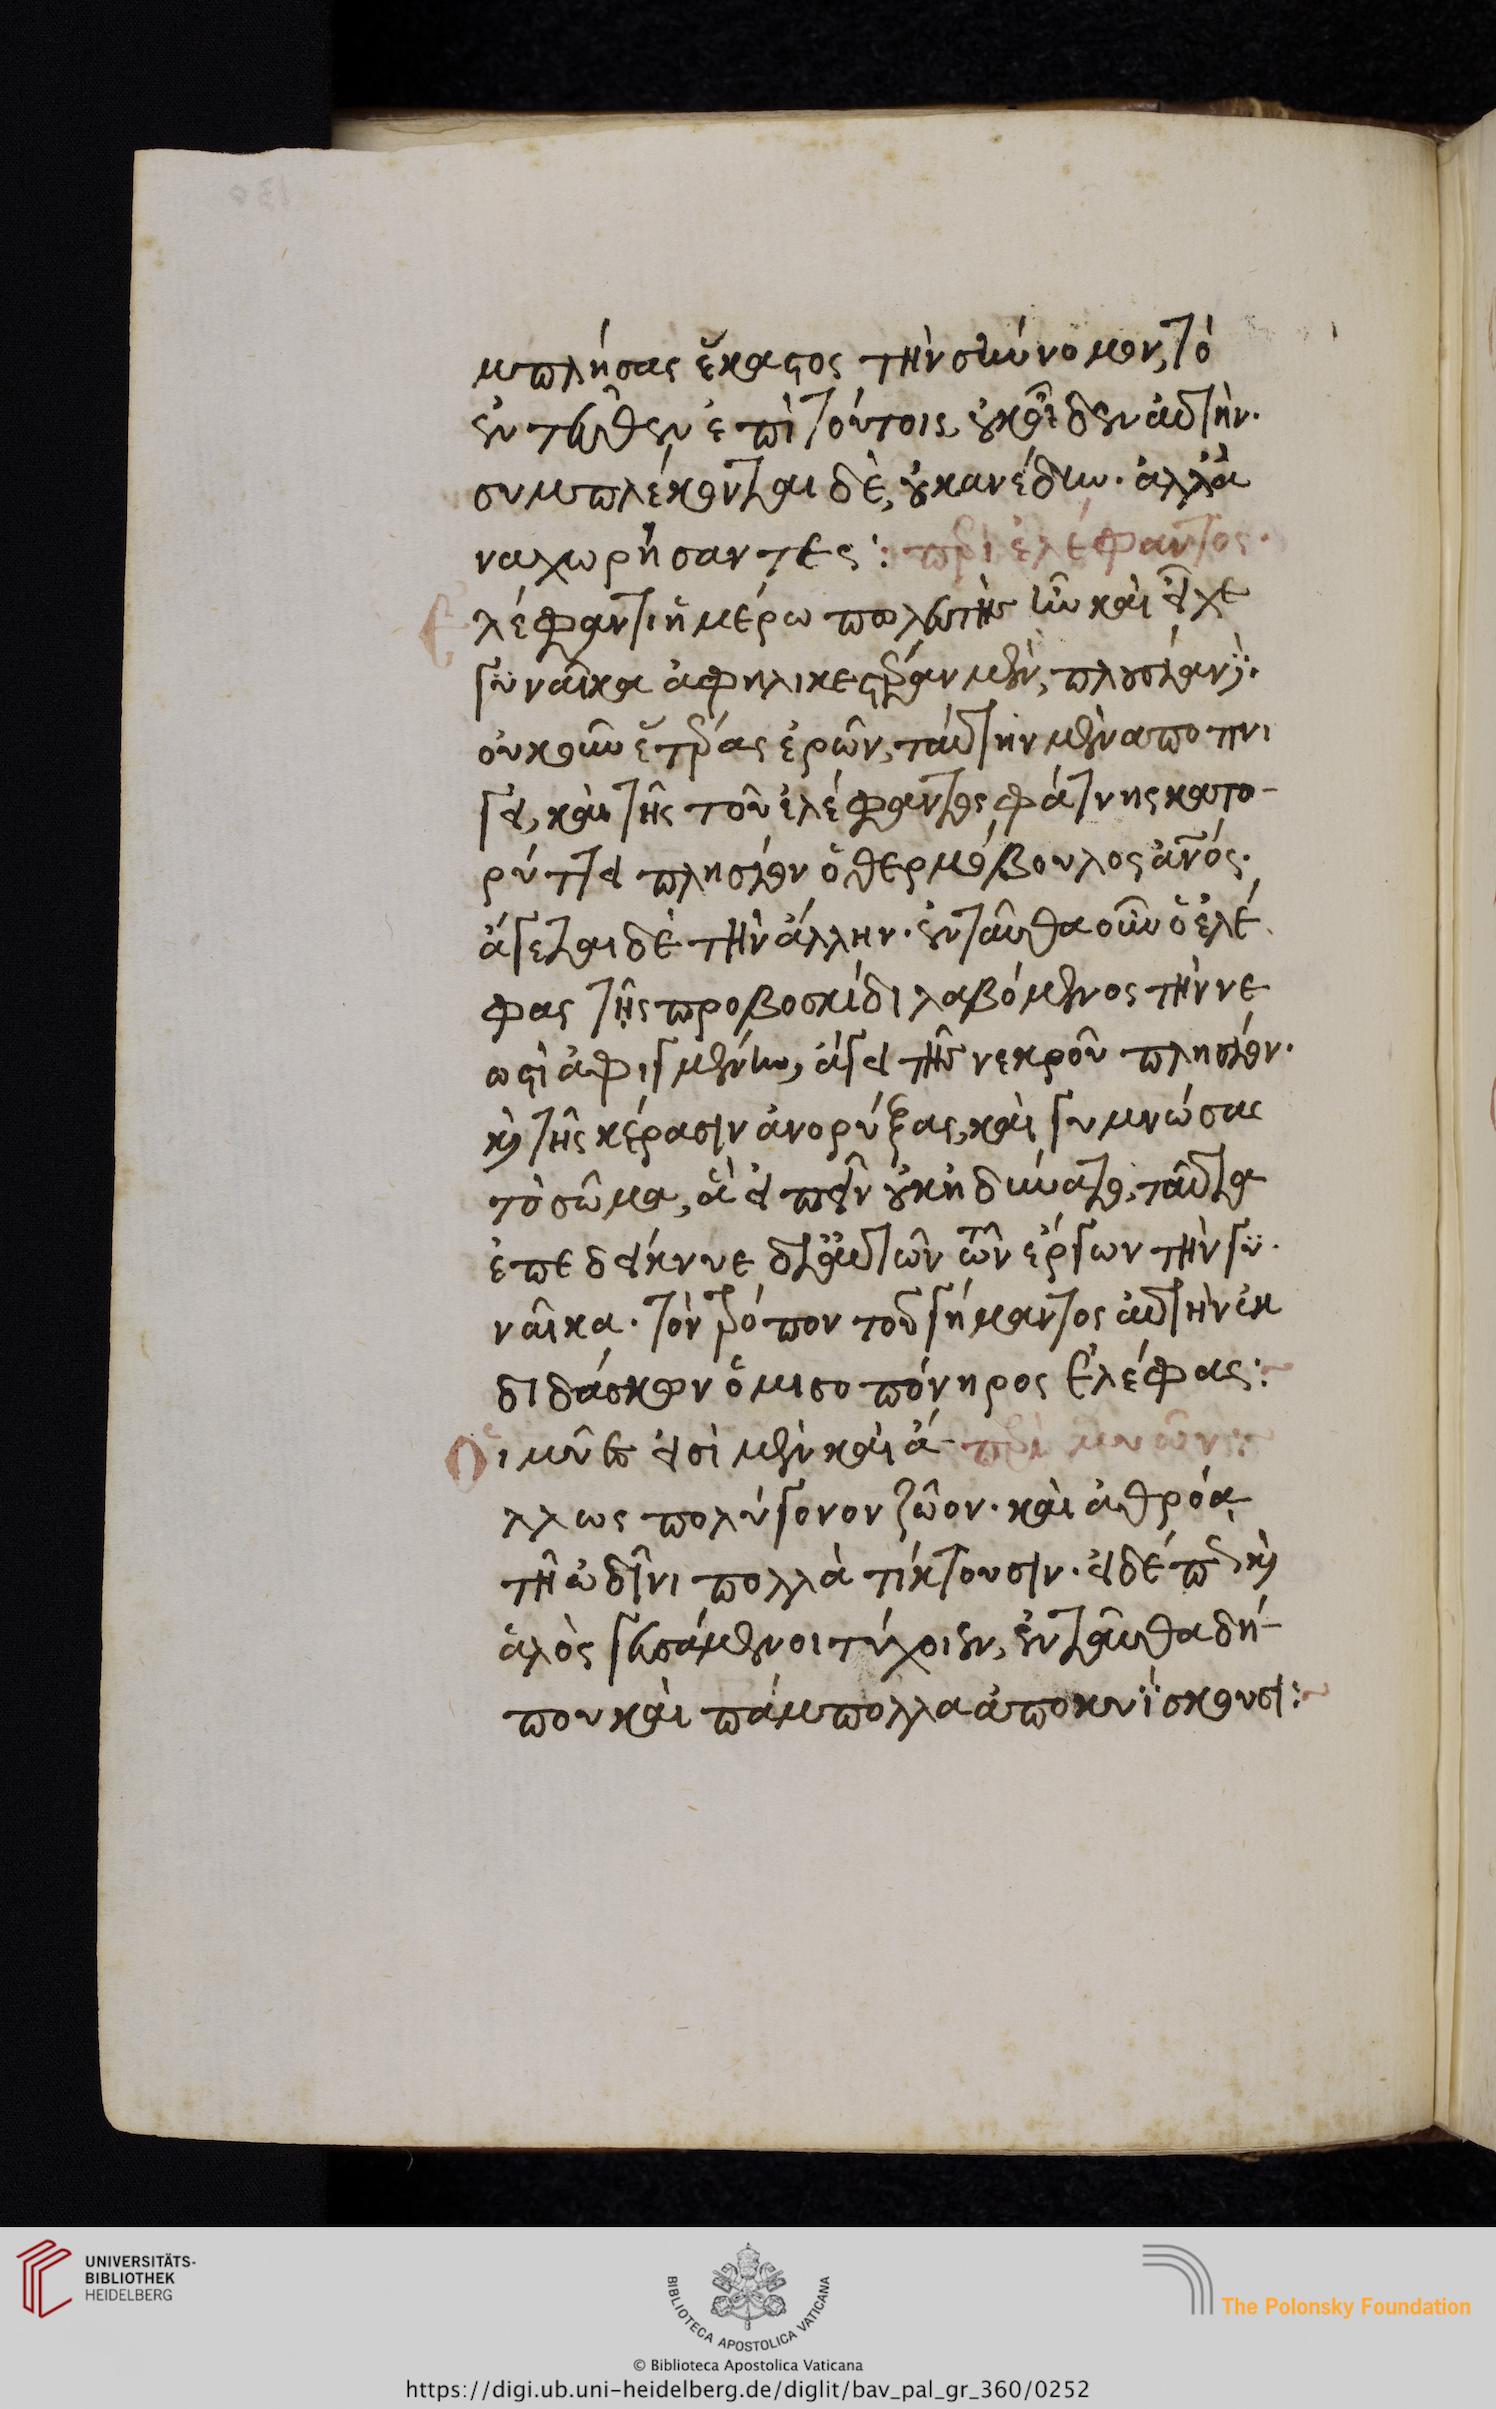 μπλήσας ἕκαστος τὴν σύννομον, τὸ
ἐντεῦθεν ἐπὶ τούτοις, οὐκ οἶδεν αὐτήν.
συμπλέκονται δὲ, οὐκ ἀνέδην. ἀλλὰ ἀ
ναχωρήσαντες: περὶ ἐλέφαντος.
Ἐλέφαντι ἡμέρω πωλευτὴς ἦν καὶ εἶχε
γυναῖκα ἀφηλικεστέραν μὲν, πλουσίαν δέ.
οὐκοῦν ἑτέρας ἐρῶν, ταύτην μὲν αποπνί
γει, καὶ τῆς τοῦ ἐλέφαντος φάτνης κατο-
ρύττει πλησίον ὁ θερμόβουλος ἀνός.
ἄγεται δὲ τὴν ἄλλην. ἐνταῦθα οὖν ὁ ἐλέ
φας τῇς προβοσκίδι λαβόμενος τὴν νε
ωστὶ ἀφιγμένην, ἄγει τῆς νεκροῦ πλησίον.
καὶ τῆς κέρασιν ἀνορύξας, καὶ γυμνώσας
τὸ σῶμα, ἃ εἰπεῖν οὐκ ἠδύνατο, ταῦτα
ἐπεδείκνυε δι αὐτῶν τῶν ἔργων τὴν γυ
ναῖκα. τὸν τρόπον τοῦ γήμαντος αὐτὴν ἐκ
διδάσκων ὁ μισοπόνηρος ἐλέφας:
Οἱ μῦες εἰσὶ μὲν καὶ ἄ- περὶ μυῶν:
λλως πολύγονον ζῶον. καὶ ἀθρόα
τῇ ὠδῖνι πολλὰ τίκτουσιν. εἰ δέ πη καὶ
ἁλὸς γευσάμενοι τύχοιεν, ἐνταῦθα δή-
που καὶ πάμπολλα ἀποκυΐσκουσι:
UNIVERSITÄTS-
BIBLIOTHEK
HEIDELBERG
BIBLIOTECA APOSTOLICA VATICANA
The Polonsky Foundation
© Biblioteca Apostolica Vaticana
https://digi.ub.uni-heidelberg.de/diglit/bav_pal_gr_360/0252